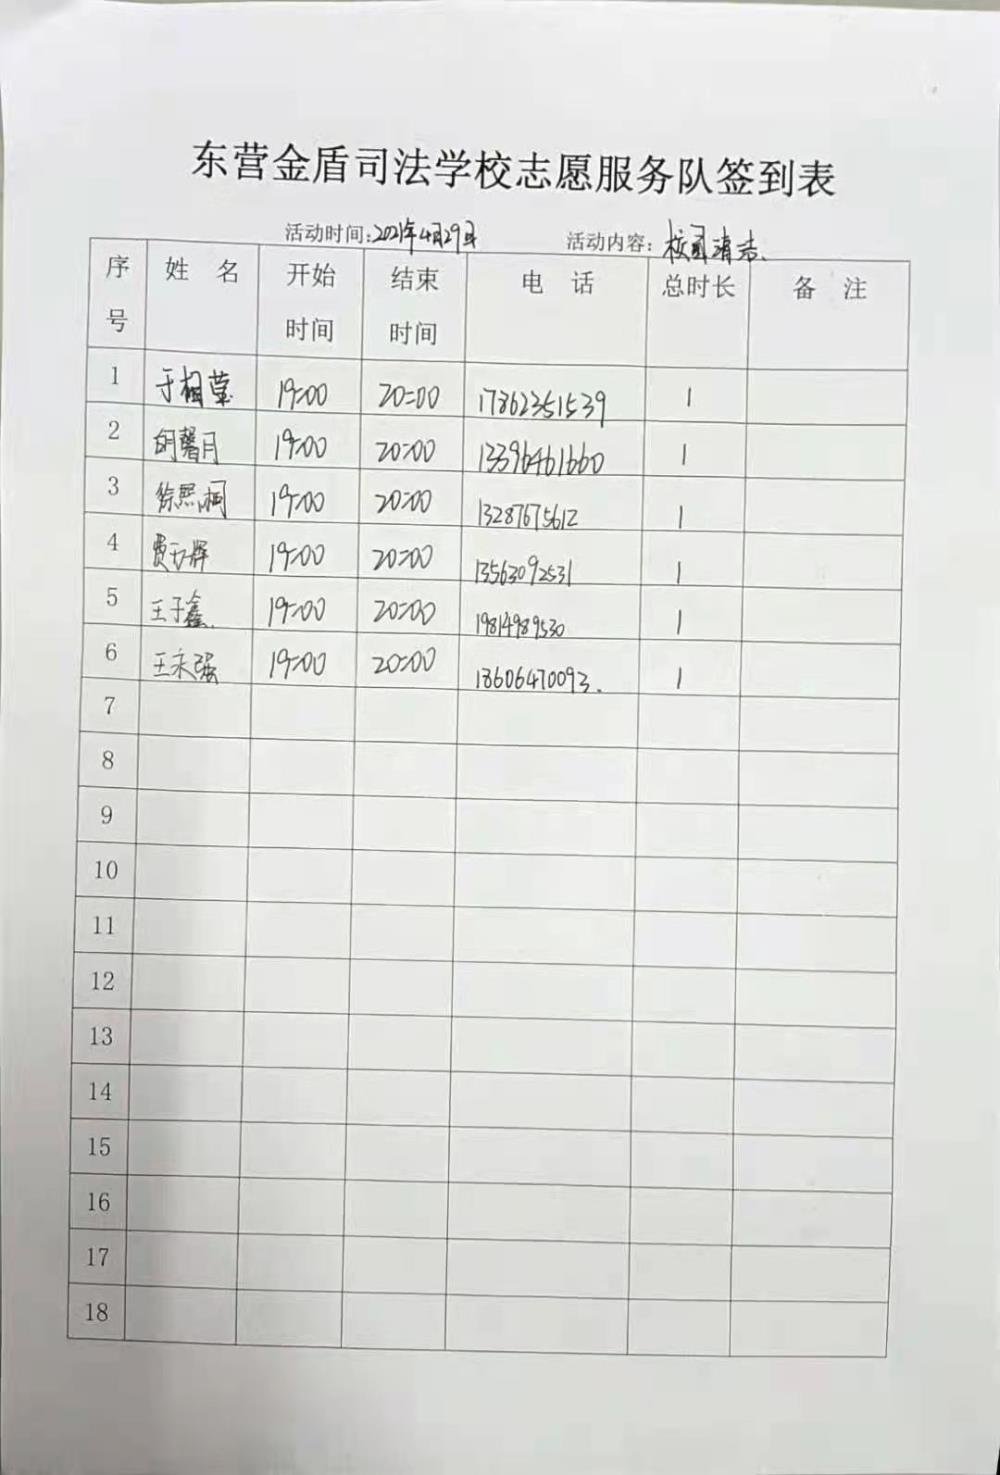 东营金盾司法学校志愿服务队签到表
活动时间:2021年4月29日 活动内容:校园清洁
序号 姓 名 开始时间 结束时间 电 话 总时长 备 注
1 于相莹 19:00 20:00 17862351539 1
2 胡馨月 19:00 20:00 13396461660 1
3 徐熙桐 19:00 20:00 13287675612 1
4 19:00 20:00 13563092531 1
5 王子鑫 19:00 20:00 19814989530 1
6 王永强 19:00 20:00 18606470093 1
7
8
9
10
11
12
13
14
15
16
17
18